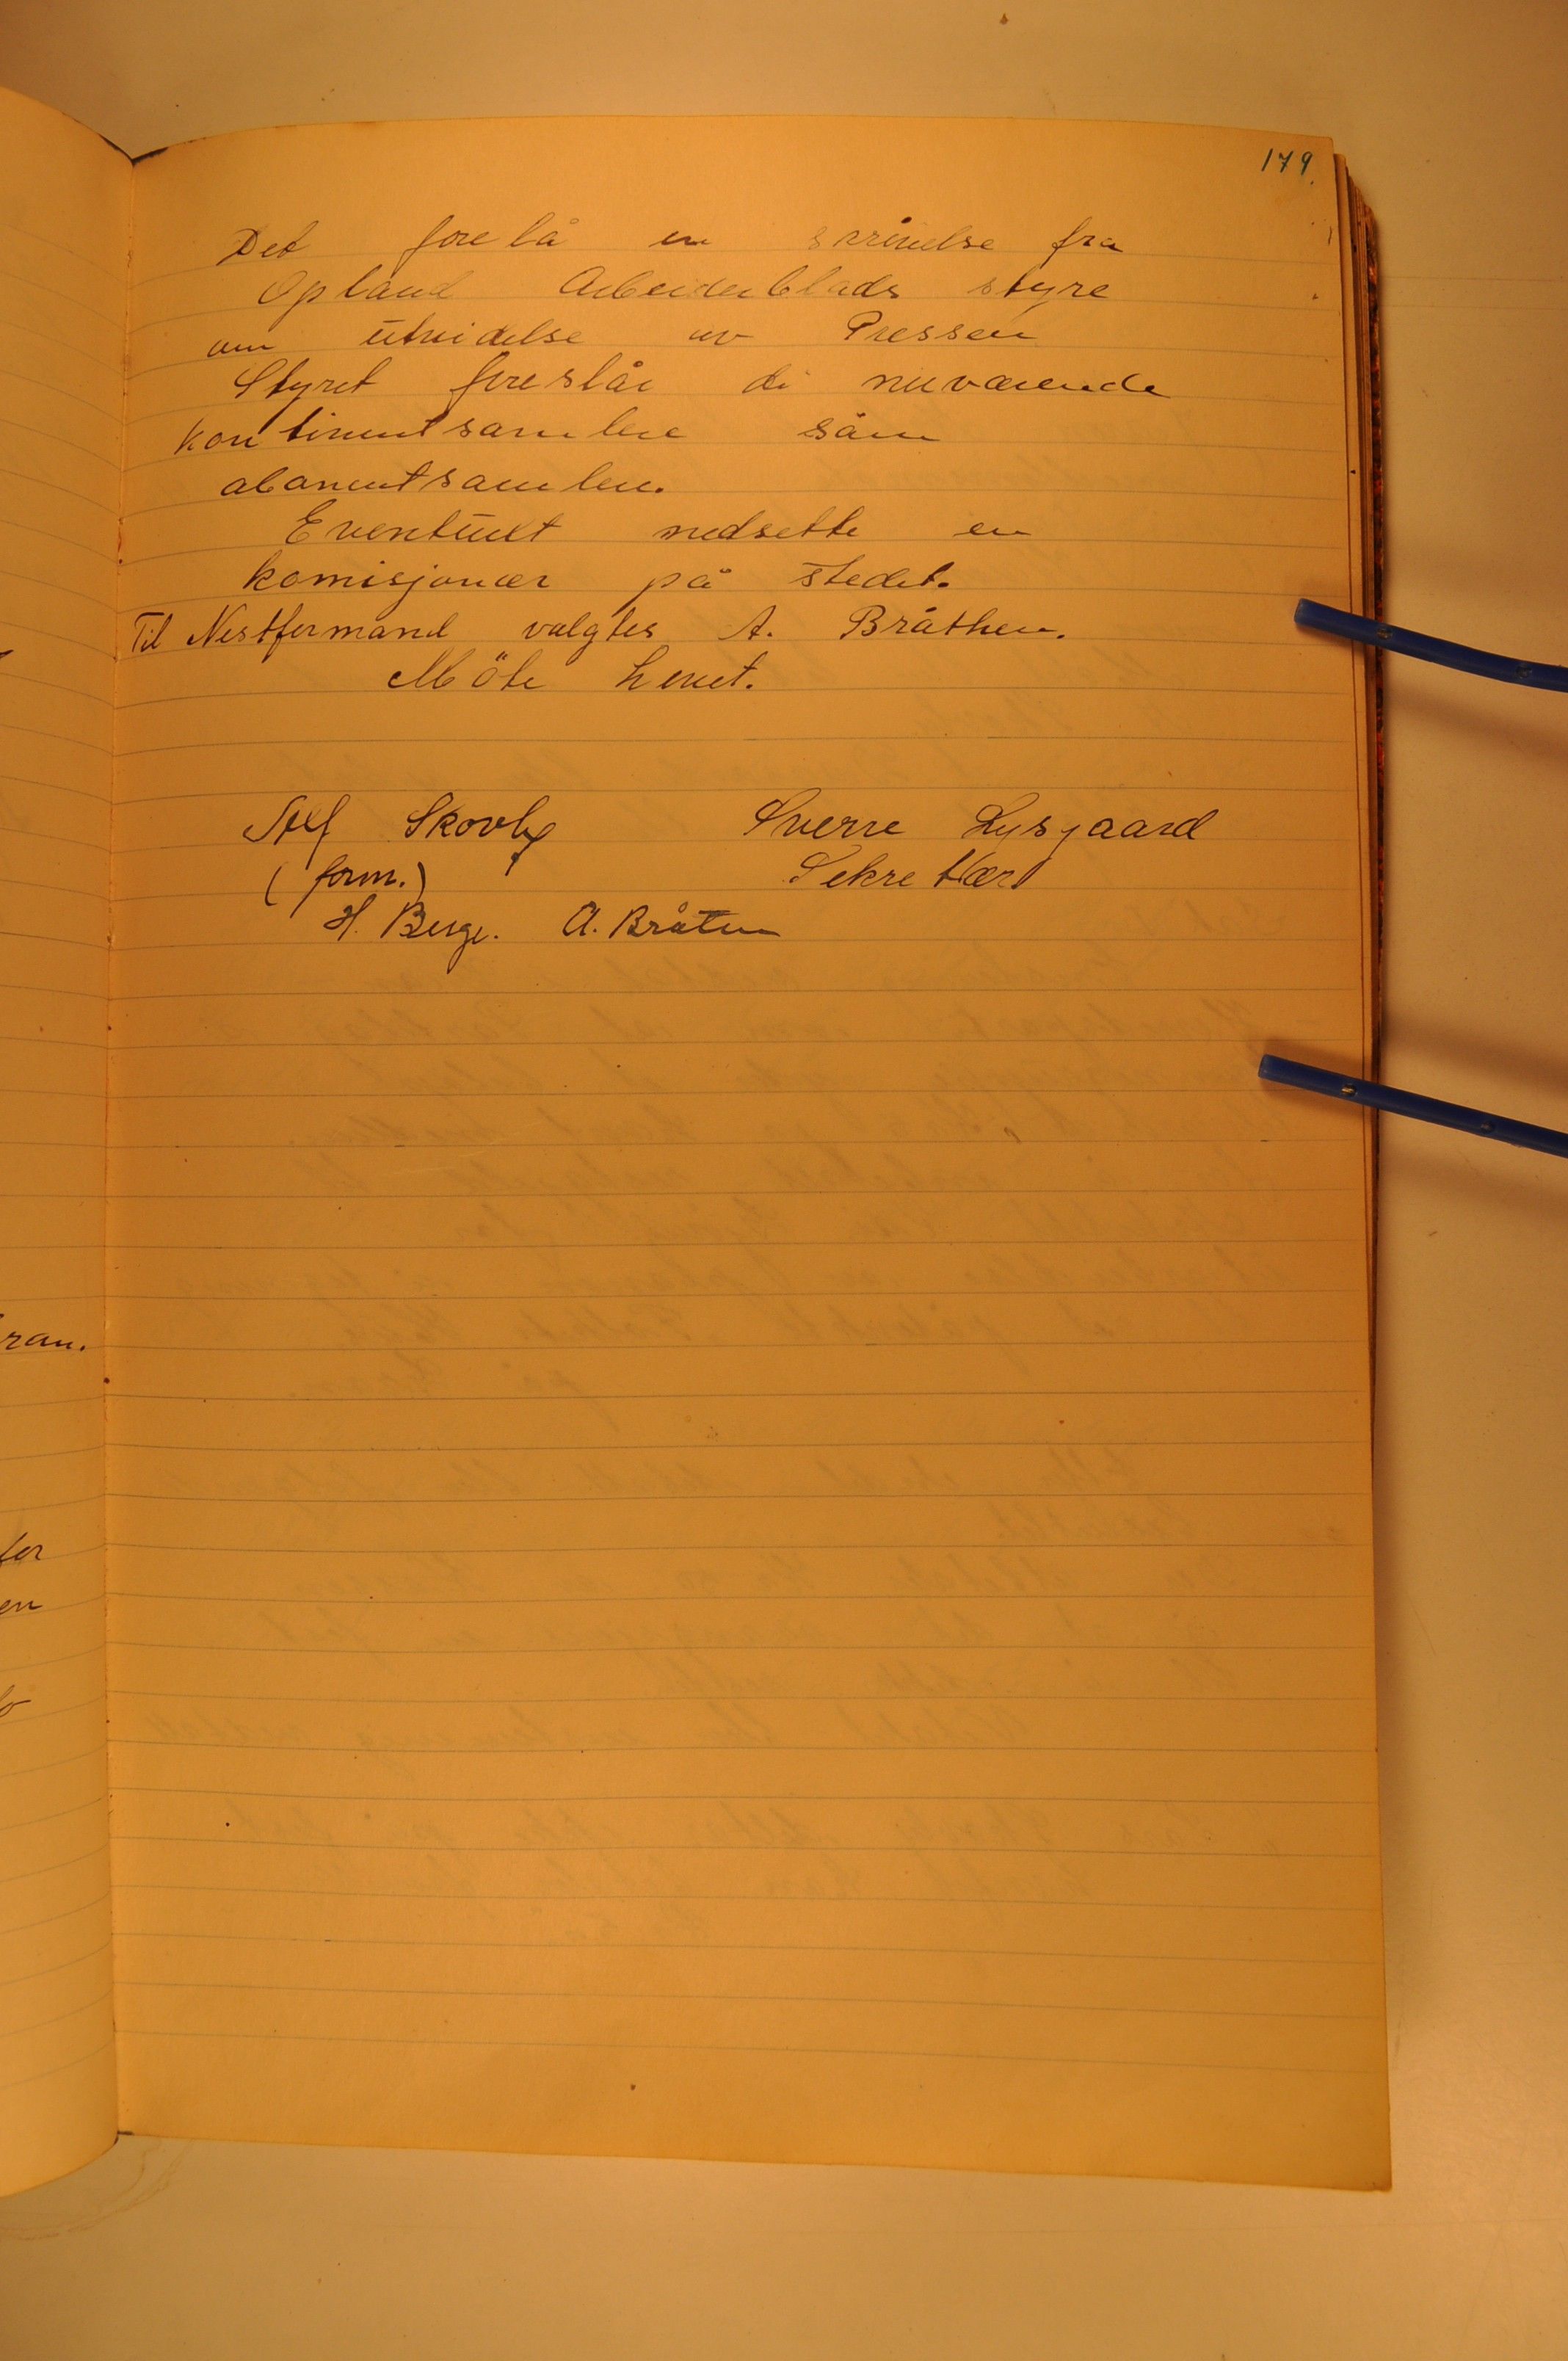 179.
Det forelå en skrivelse fra
Opland Arbeiderblads styre
om utvidelse av Pressen
Styret foreslår di nuværende
kontinentsamlere såm
abonentsamlere.
Eventuelt nedsette en
komisjonær på stedet.
Til Nestformand valgtes A. Bråthen.
Möte hevet.
Alf Skovly Sverre Lysgaard
(form.) Sekretær
H. Berge. A. Bråten
ran.
for
en